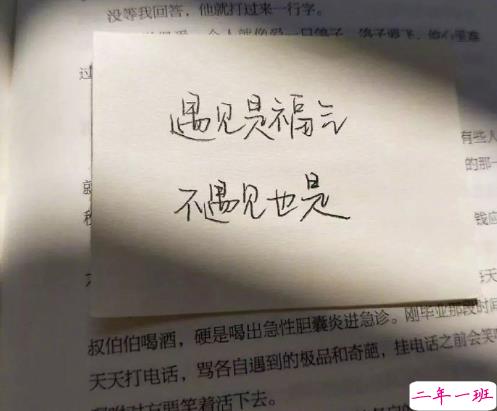 没等我回答，他就打过来一行字。
过
遇见是福气
有些人
的那一
就
不遇见也是
钱应
叔伯伯喝酒，硬是喝出急性胆囊炎进急诊。刚毕业那段时间
天天打电话，骂各自遇到的极品和奇葩，挂电话之前会笑
要笑着活下去。
二年一班